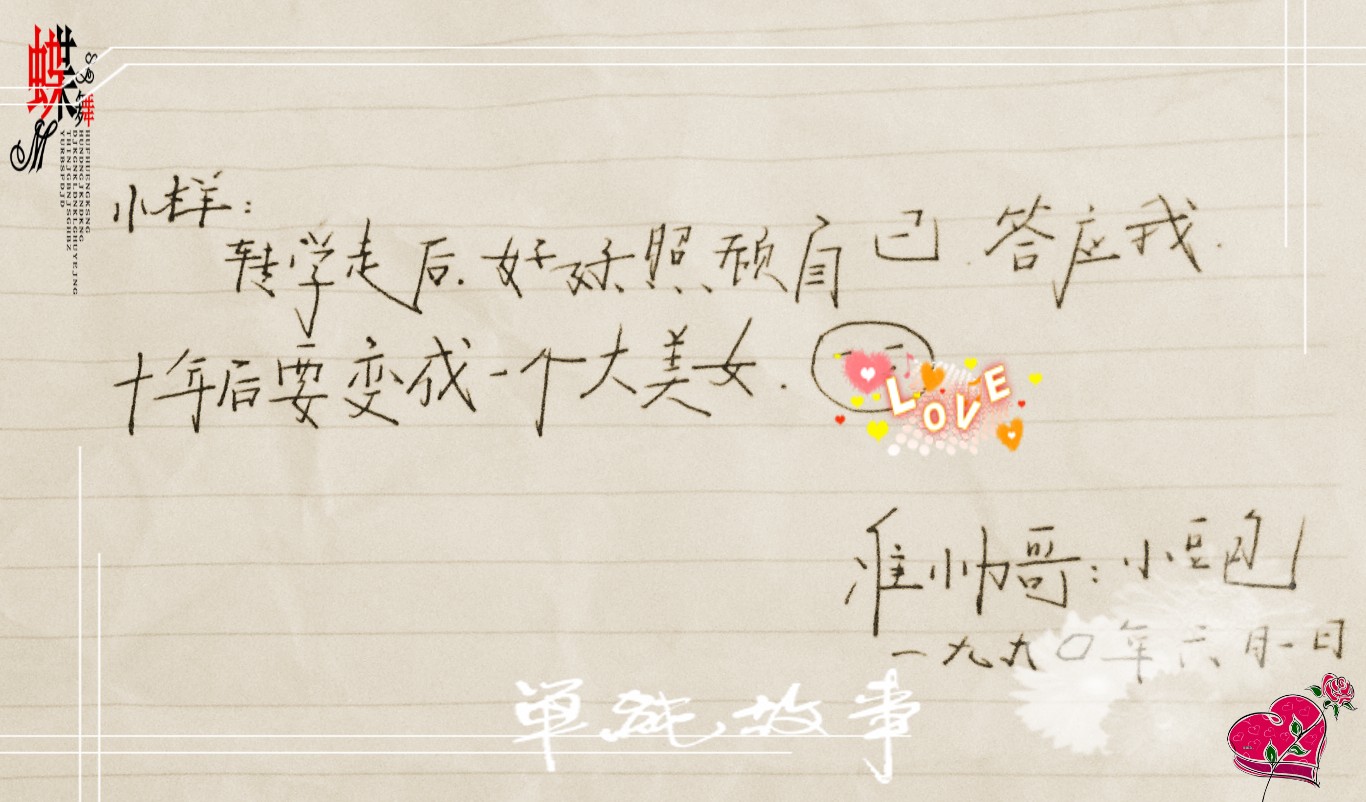 蝶
舞
小样:
转学走后.好好照顾自己.答应我.
十年后要变成一个大美女.
LOVE
准帅哥:小豆包
一九九〇年六月一日
故事